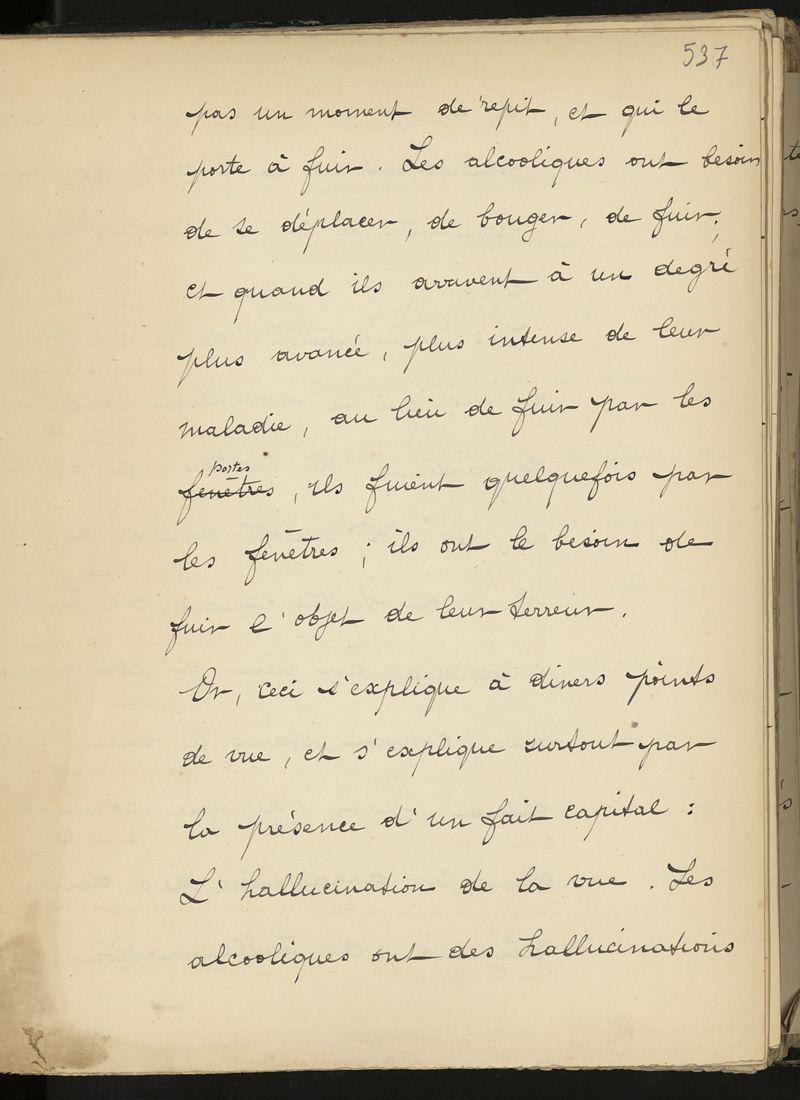 537
pas un moment de répit, et qui le
porte à fuir. Les alcooliques ont besoin
de se déplacer, de bouger, de fuir;
et quand ils arrivent à un degré
plus avancé, plus intense de leur
maladie, au lieu de fuir par les
portes
fenêtres, ils fuient quelquefois par
les fenêtres; ils ont le besoin de
fuir l'objet de leur terreur.
Or, ceci s'explique à divers points
de vue, et s'explique surtout par
la présence d'un fait capital:
L'hallucination de la vue. Les
alcooliques ont des hallucinations